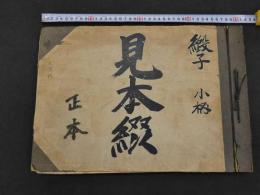 緞子 小柄
見本綴
正本